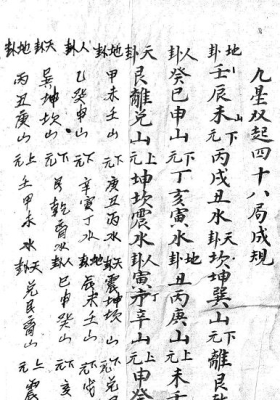 九星双起四十八局成規
地卦壬辰未山下元丙戌丑水天卦坎坤巽山下元離艮
人卦癸巳申山下元丁亥寅水地卦丑丙庚山上元未壬
天卦艮離兑山上元坤坎震水人卦寅辛山上元申癸
地卦甲未壬山下元庚丑丙水天卦震坤坎山下元兑
人卦乙癸申山下元辛寅丁水地卦辰未壬山下元
天卦巽坤坎山下元乾水人卦巳申癸山下元亥
地卦丙丑庚山上元壬甲未水天卦兑艮山上元震